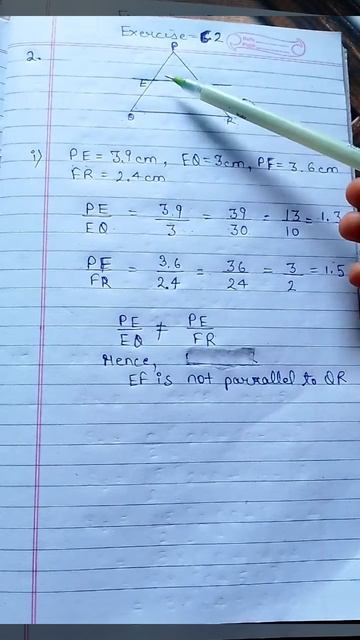 Exercise-6.2
2.
P
E
Q R
i) PE = 3.9 cm, EQ = 3 cm, PF = 3.6 cm
FR = 2.4 cm
PE/EQ = 3.9/3 = 39/30 = 13/10 = 1.3
PF/FR = 3.6/2.4 = 36/24 = 3/2 = 1.5
PE/EQ ≠ PE/FR
Hence,
EF is not parrallel to QR